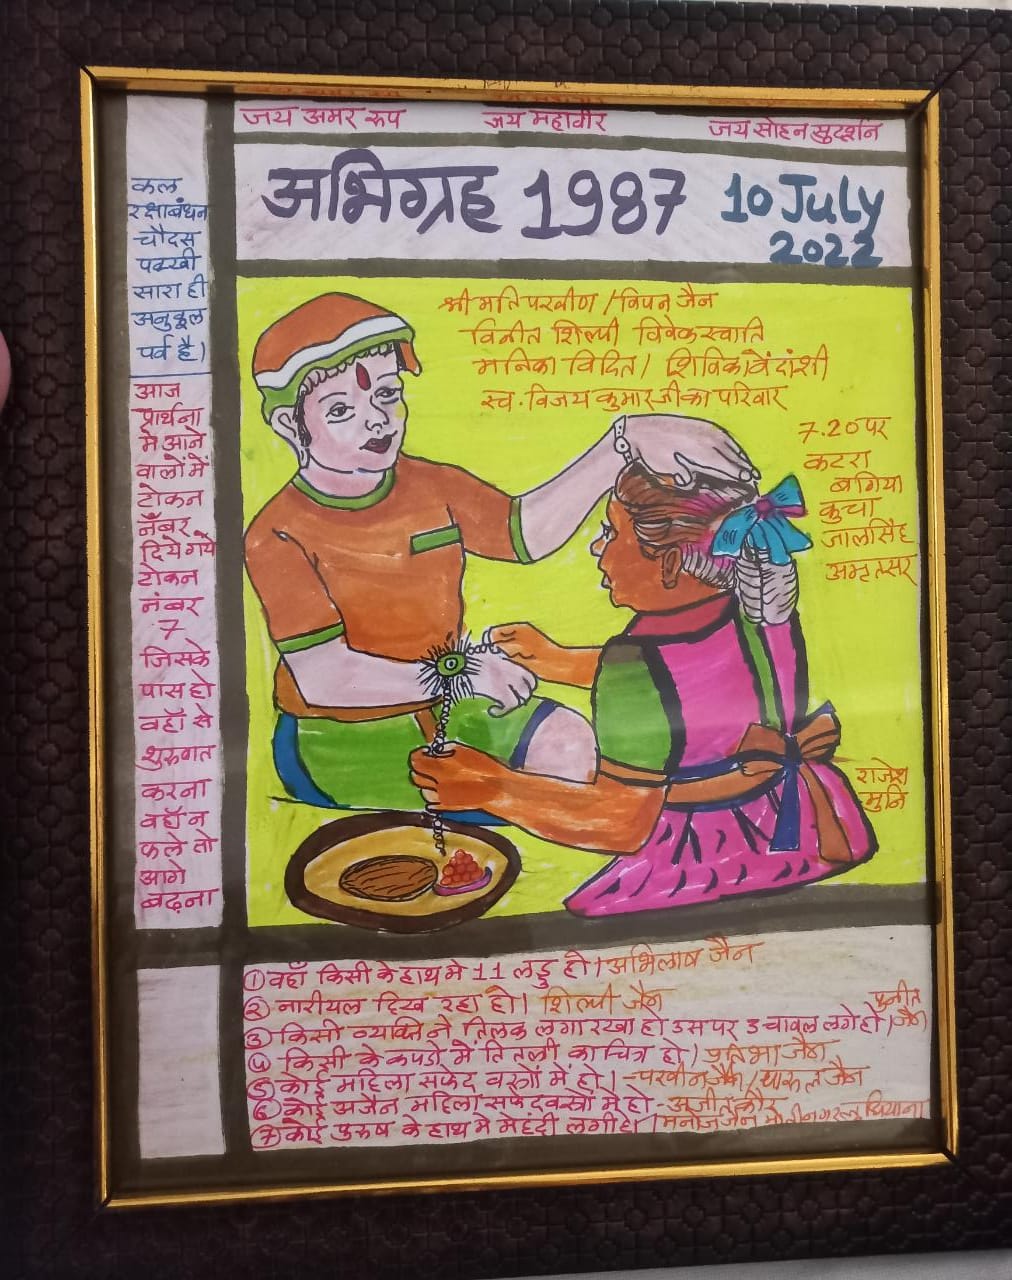 जय अमर रूप जय महावीर जय सोहन सुदर्शन
अभिग्रह 1987 10 July
2022
कल
रक्षाबंधन
चौदस
पक्खी
सारा ही
अनुकूल
पर्व है।
आज
प्रार्थना
मे आने
वालों में
टोकन
नँबर
दिये गये
टोकन
नंबर
7
जिसके
पास हो
वहाँ से
शुरुवात
करना
वहाँ न
फले तो
आगे
बढ़ना
श्री मति परवीण / विपन जैन
विनीत शिल्पी विवेक स्वाति
मनिका विदित / शिविका वेदांशी
स्व. विजय कुमार जी का परिवार
7.20 पर
कटरा
बगिया
कुचा
जालसिंह
अमृतसर
राजेश
मुनि
① वहाँ किसी के हाथ मे 11 लड्डु हो। अभिलाष जैन
② नारीयल दिख रहा हो। शिल्पी जैन
③ किसी व्यक्ति ने तिलक लगा रखा हो उस पर 3 चावल लगे हो। पुनीत जैन
④ किसी के कपडो में तितली का चित्र हो। प्रतिभा जैन
⑤ कोई महिला सफेद वस्त्रों में हो। - परवीन जैन / पारुल जैन
⑥ कोई अजैन महिला सफेद वस्त्रो मे हो - अजीत कौर
⑦ कोई पुरुष के हाथ मे मेहंदी लगी हो। मनोज जैन